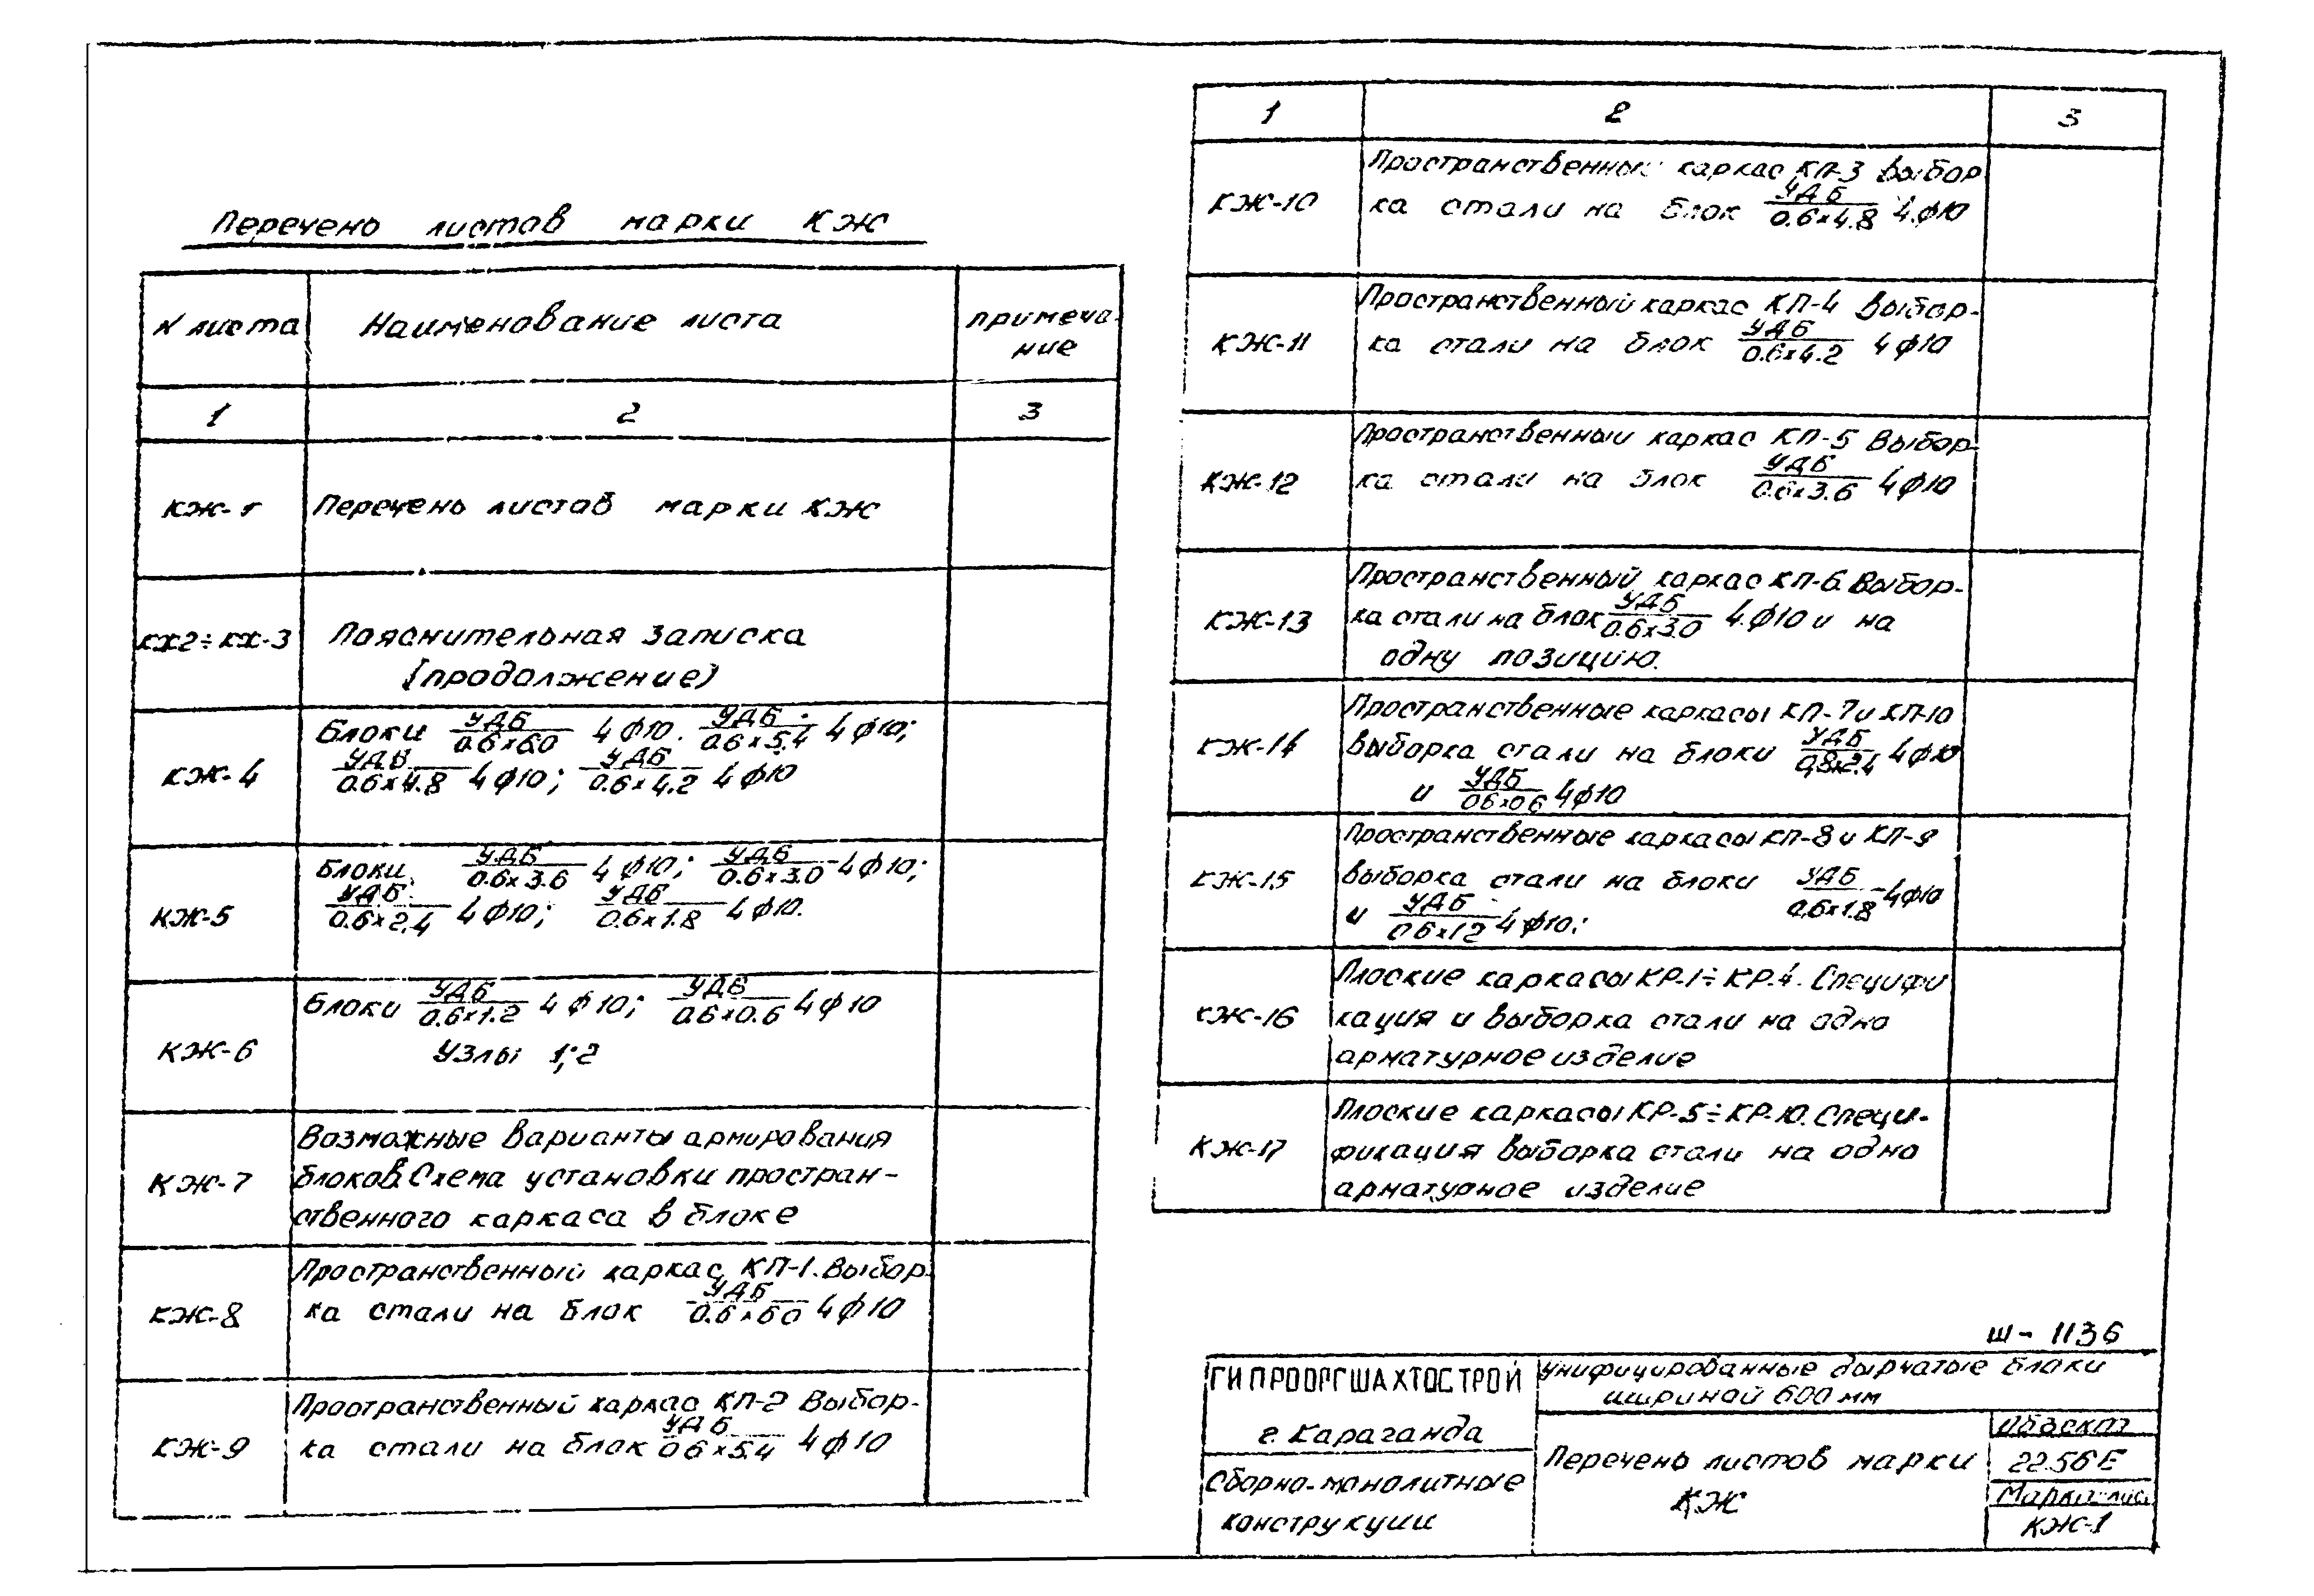 Перечень листов марки КЖ
N листа Наименование листа примеча-
ние
1 2 3
КЖ-1 Перечень листов марки КЖ
КЖ2÷КЖ-3 Пояснительная записка
(продолжение)
КЖ-4 Блоки УДБ/0.6×6.0 4φ10. УДБ/0.6×5.4 4φ10;
УДБ/0.6×4.8 4φ10; УДБ/0.6×4.2 4φ10
КЖ-5 Блоки УДБ/0.6×3.6 4φ10; УДБ/0.6×3.0 4φ10;
УДБ/0.6×2.4 4φ10; УДБ/0.6×1.8 4φ10.
КЖ-6 Блоки УДБ/0.6×1.2 4φ10; УДБ/0.6×0.6 4φ10
Узлы 1;2
КЖ-7 Возможные варианты армирования
блоков. Схема установки простран-
ственного каркаса в блоке
КЖ-8 Пространственный каркас КП-1. Выбор-
ка стали на блок УДБ/0.6×6.0 4φ10
КЖ-9 Пространственный каркас КП-2 Выбор-
ка стали на блок УДБ/0.6×5.4 4φ10
1 2 3
КЖ-10 Пространственный каркас КП-3 Выбор
ка стали на блок УДБ/0.6×4.8 4.φ10
КЖ-11 Пространственный каркас КП-4 Выбор-
ка стали на блок УДБ/0.6×4.2 4φ10
КЖ-12 Пространственный каркас КП-5 Выбор-
ка стали на блок УДБ/0.6×3.6 4φ10
КЖ-13 Пространственный каркас КП-6. Выбор-
ка стали на блок УДБ/0.6×3.0 4.φ10 и на
одну позицию.
КЖ-14 Пространственные каркасы КП-7 и КП-10
Выборка стали на блоки УДБ/0,8×2.4 4φ10
и УДБ/0.6×0.6 4φ10
КЖ-15 Пространственные каркасы КП-8 и КП-9
Выборка стали на блоки УДБ/0.6×1.8 4φ10
и УДБ/0.6×1.2 4φ10;
КЖ-16 Плоские каркасы КР-1÷КР-4. Специфи
кация и выборка стали на одно
арматурное изделие
КЖ-17 Плоские каркасы КР-5÷КР-10. Специ-
фикация выборка стали на одно
арматурное изделие
Ш-1136
ГИПРООРГШАХТОСТРОЙ
г. Караганда
Сборно-монолитные
конструкции
Унифицированные дырчатые блоки
шириной 600 мм
Перечень листов марки
КЖ
Объект
22.56Е
Марка-лис
КЖ-1